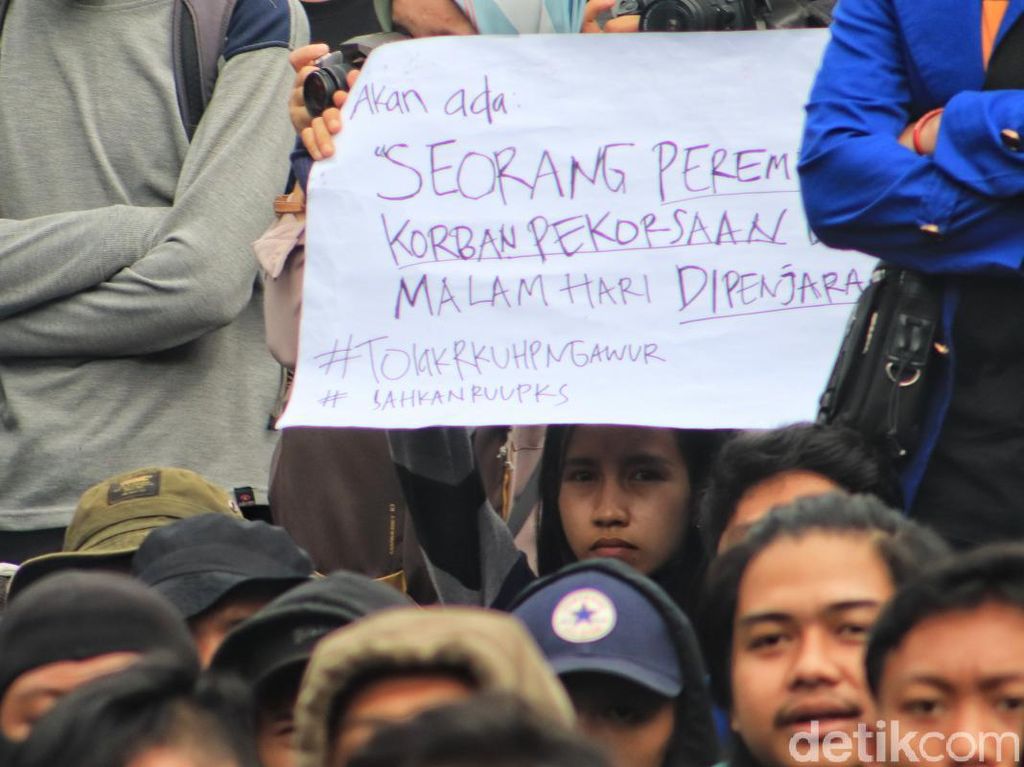 Akan ada:
"SEORANG PEREM
KORBAN PEKORSAAN
MALAM HARI DIPENJARA
#TOLAKRKUHPNGAWUR
# SAHKANRUUPKS
detikcom